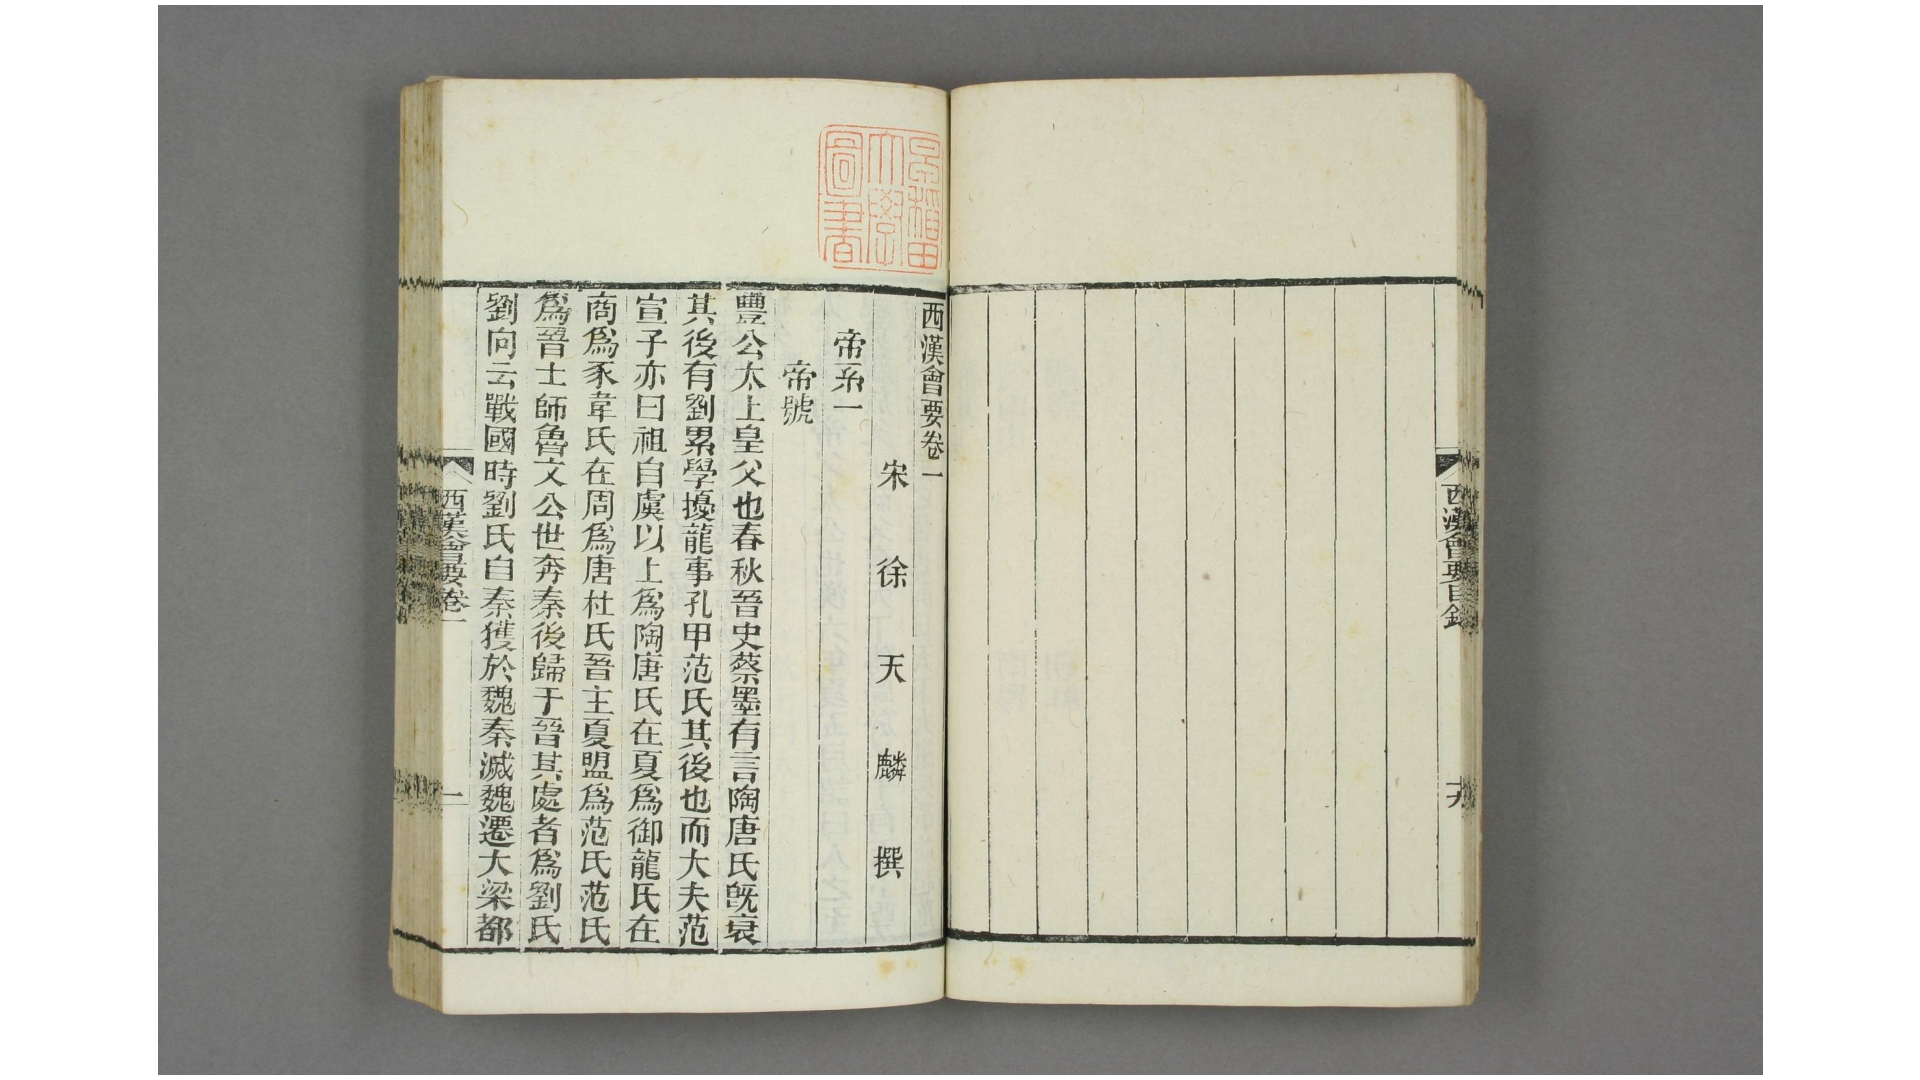 西漢會要目錄
十九
早稻田
大學
圖書
西漢會要卷一
宋徐天麟撰
帝系一
帝號
豐公太上皇父也春秋晉史蔡墨有言陶唐氏旣衰
其後有劉累學擾龍事孔甲范氏其後也而大夫范
宣子亦曰祖自虞以上爲陶唐氏在夏爲御龍氏在
商爲豕韋氏在周爲唐杜氏晉主夏盟爲范氏范氏
爲晉士師魯文公世奔秦後歸于晉其處者爲劉氏
劉向云戰國時劉氏自秦獲於魏秦滅魏遷大梁都
西漢會要卷一
一